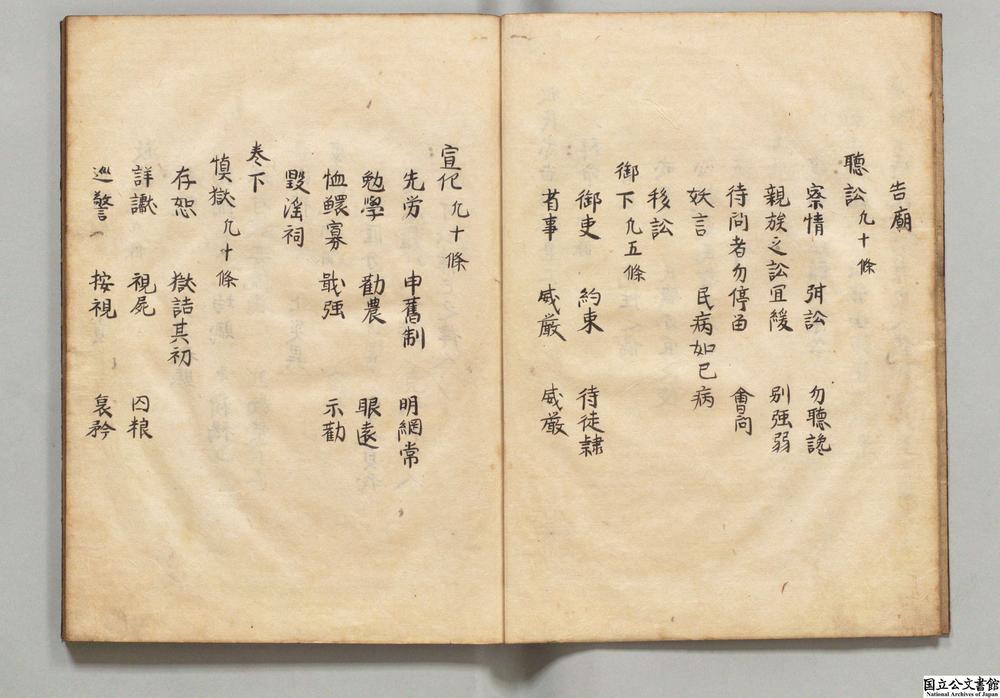 告廟
聽訟 凡十條
察情 弭訟 勿聽讒
親族之訟宜緩 別强弱
待問者勿停留 會問
妖言 民病如己病
移訟
御下 凡五條
御吏 約束 待徒隷
省事 威厳 威厳
宣化 凡十條
先労 申舊制 明綱常
勉學 勸農 眼遠
恤鰥寡 戢强 示勸
毀淫祠
巻下
慎獄 凡十條
存恕 獄詰其初
詳讞 視屍 囚粮
巡警 按視 哀矜
国立公文書館
National Archives of Japan